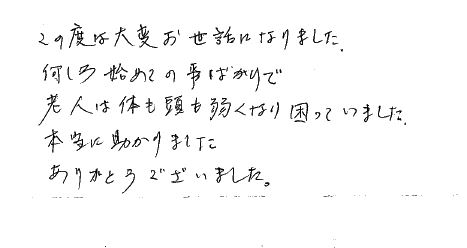 この度は大変お世話になりました.
何しろ始めての事ばかりで
老人は体も頭も弱くなり困っていました.
本当に助かりました
ありがとうございました。